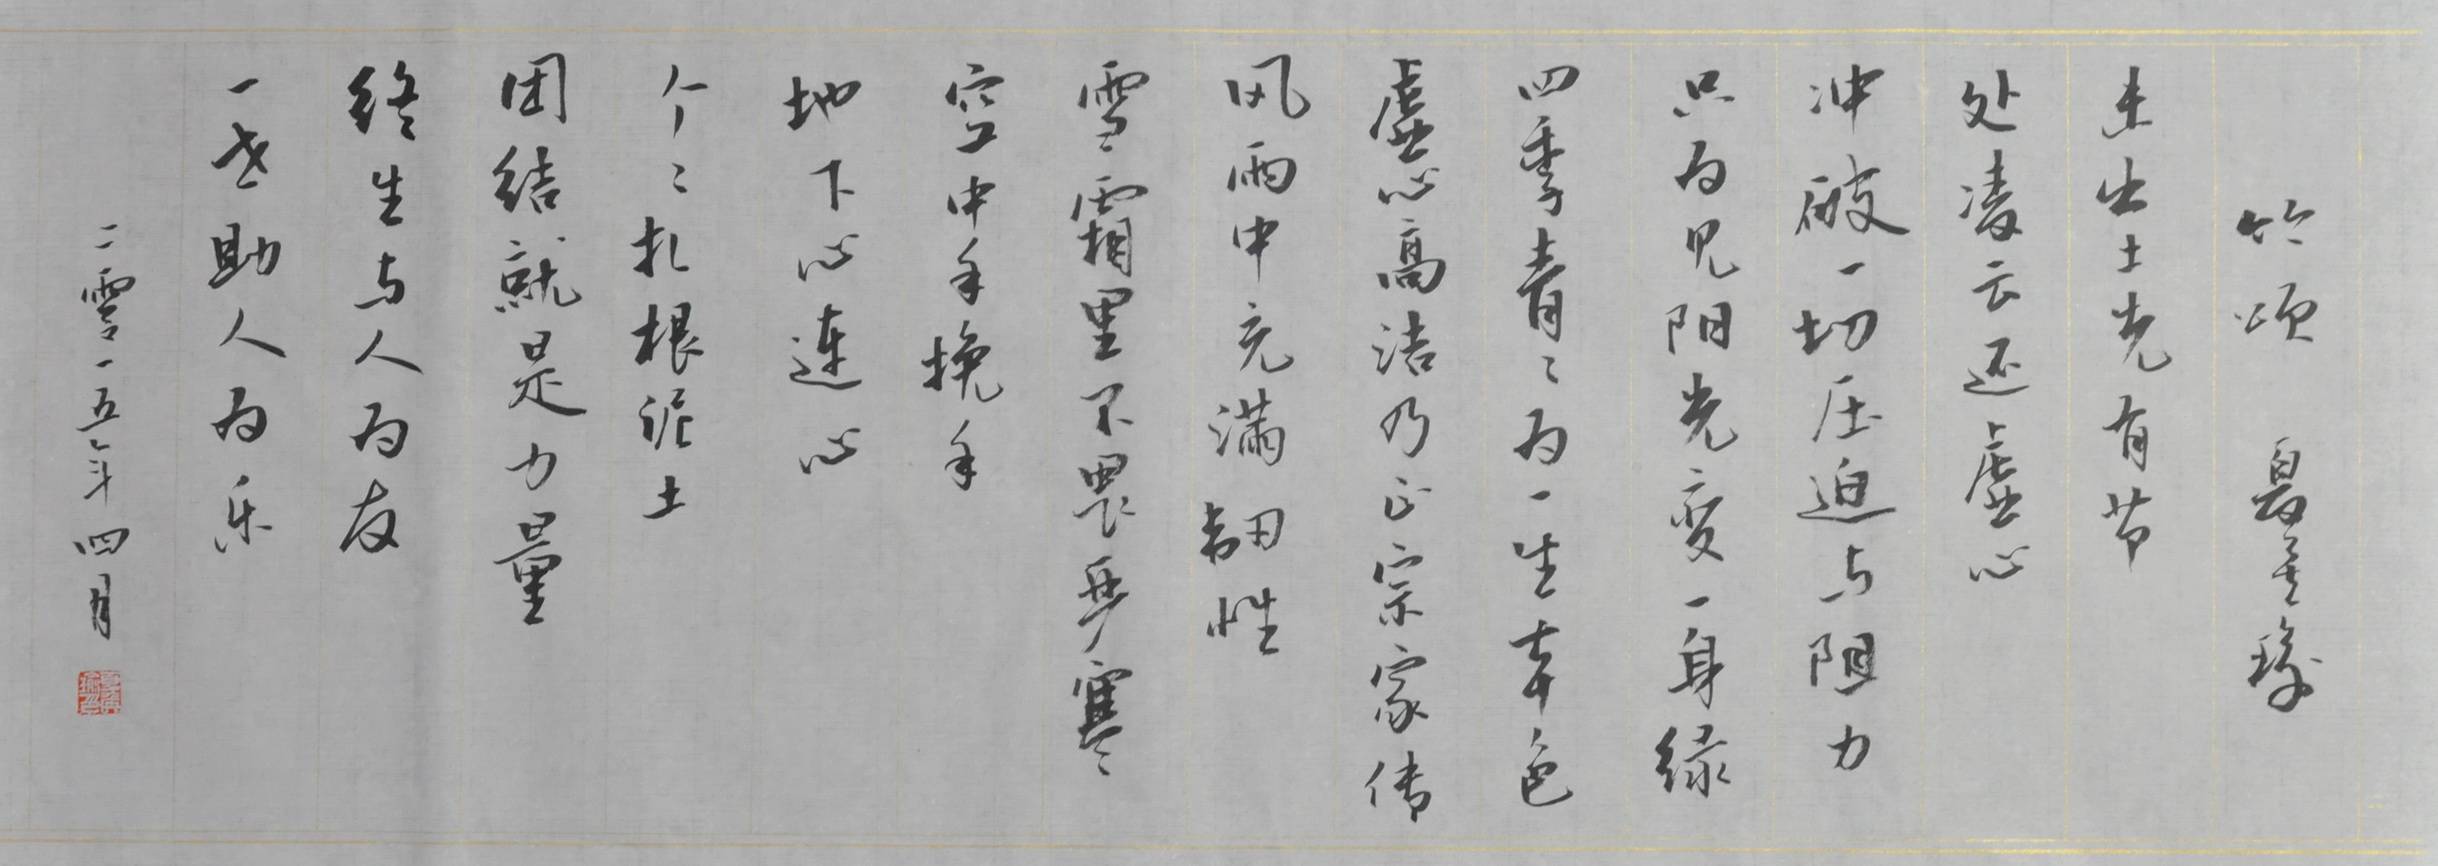 竹颂 夏玉瑜
未出土先有节
处凌云还虚心
冲破一切压迫与阻力
只为见阳光变一身绿
四季青々为一生本色
虚心高洁乃正宗家传
风雨中充满韧性
雪霜里不畏严寒
空中手挽手
地下心连心
个々扎根泥土
团结就是力量
终生与人为友
一世助人为乐
二零一五年四月